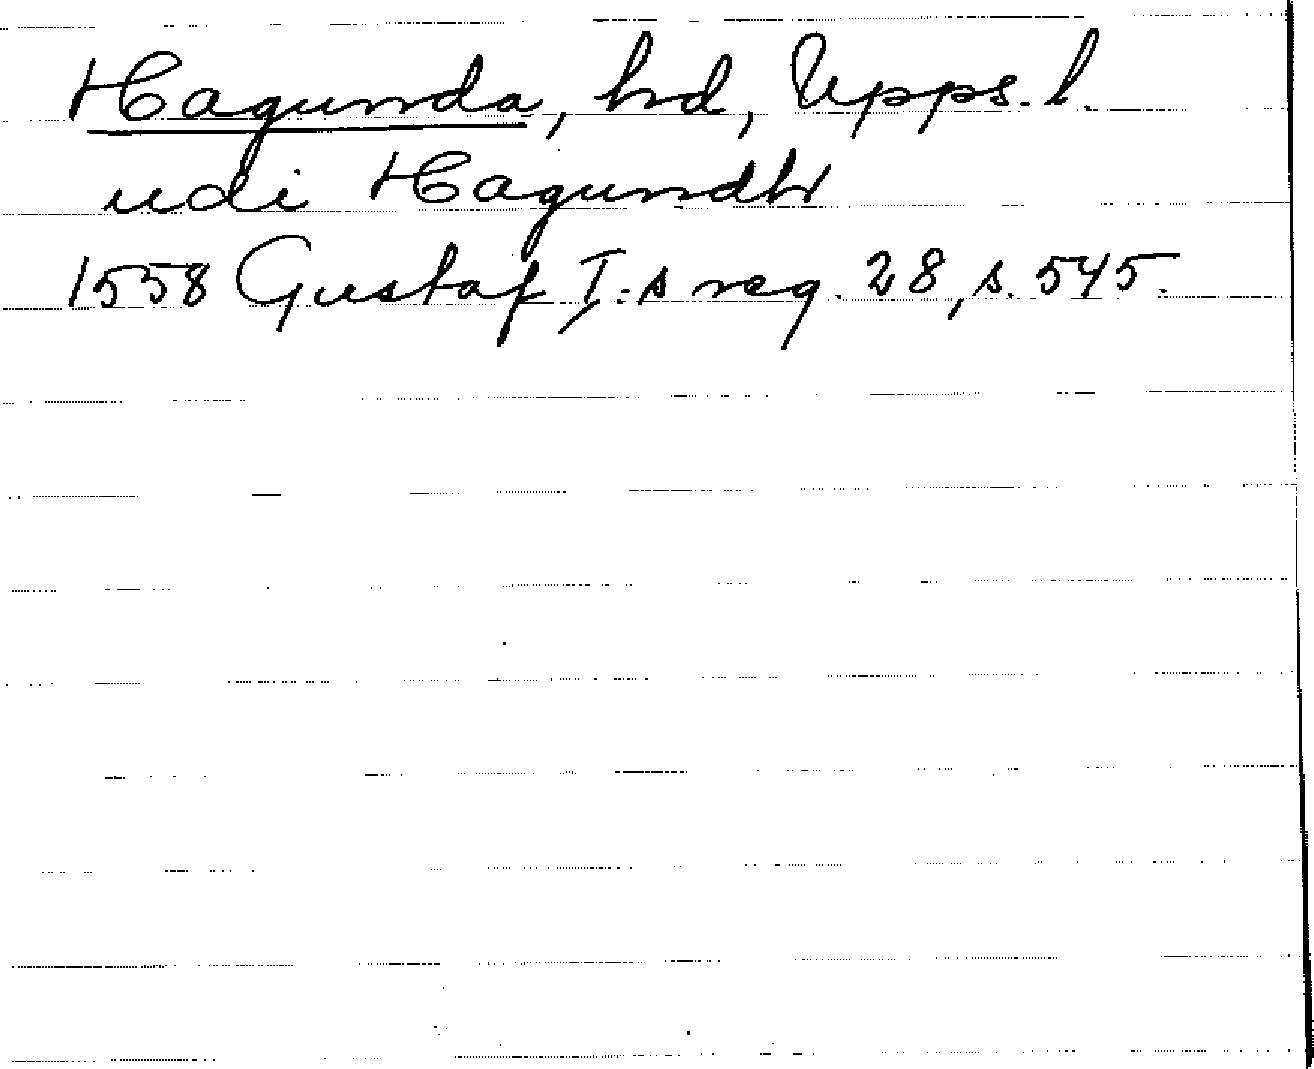 Hagunda, hd, Upps. l.
udi Hagundh
1558 Gustaf I:s reg. 28, s. 545.